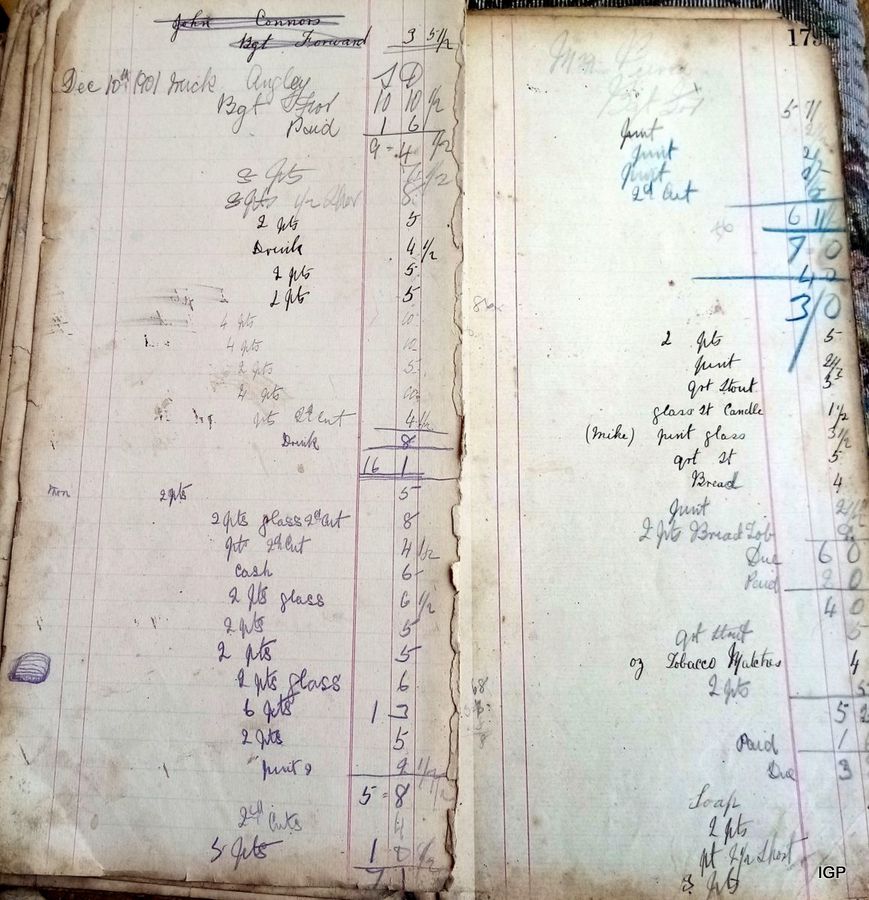 John Connors
Bgt Forward 3 5 1/2
Dec 10th 1901 Mick Angley S D
Bgt For 10 10 1/2
Paid 1 6
9 - 4 1/2
3 pts 7 1/2
3 pts
2 pts 5
Drink 4 1/2
2 pts 5
2 pts 5
4 pts 10
4 pts 10
2 pts 5
4 pts 10
pt 2d Cut 4 1/2
Drink 8
16 1
2 pts 5
2 pts glass 2d Cut 8
pt 2d Cut 4 1/2
Cash 6
2 pts glass 6 1/2
2 pts 5
2 pts 5
2 pts glass 6
6 pts 1 3
2 pts 5
pints 9 1/2
5 - 8
2d Cuts 4
5 pts 1 0 1/2
7 1
Bgt For
pint
pint
pint
2d Cut
7 0
4 0
3/0
2 pts 5
pint 2 1/2
qrt Stout 5
glass St Candle 1 1/2
(Mike) pint glass 3 1/2
qrt St 5
Bread 4
pint 2 1/2
2 pts Bread Tob
Due 6 0
Paid 2 0
4 0
qrt Stout 5
oz Tobacco Matches 4
2 pts 5
5 2
Paid 1
Due 3
Soap
2 pts
3 pts
IGP